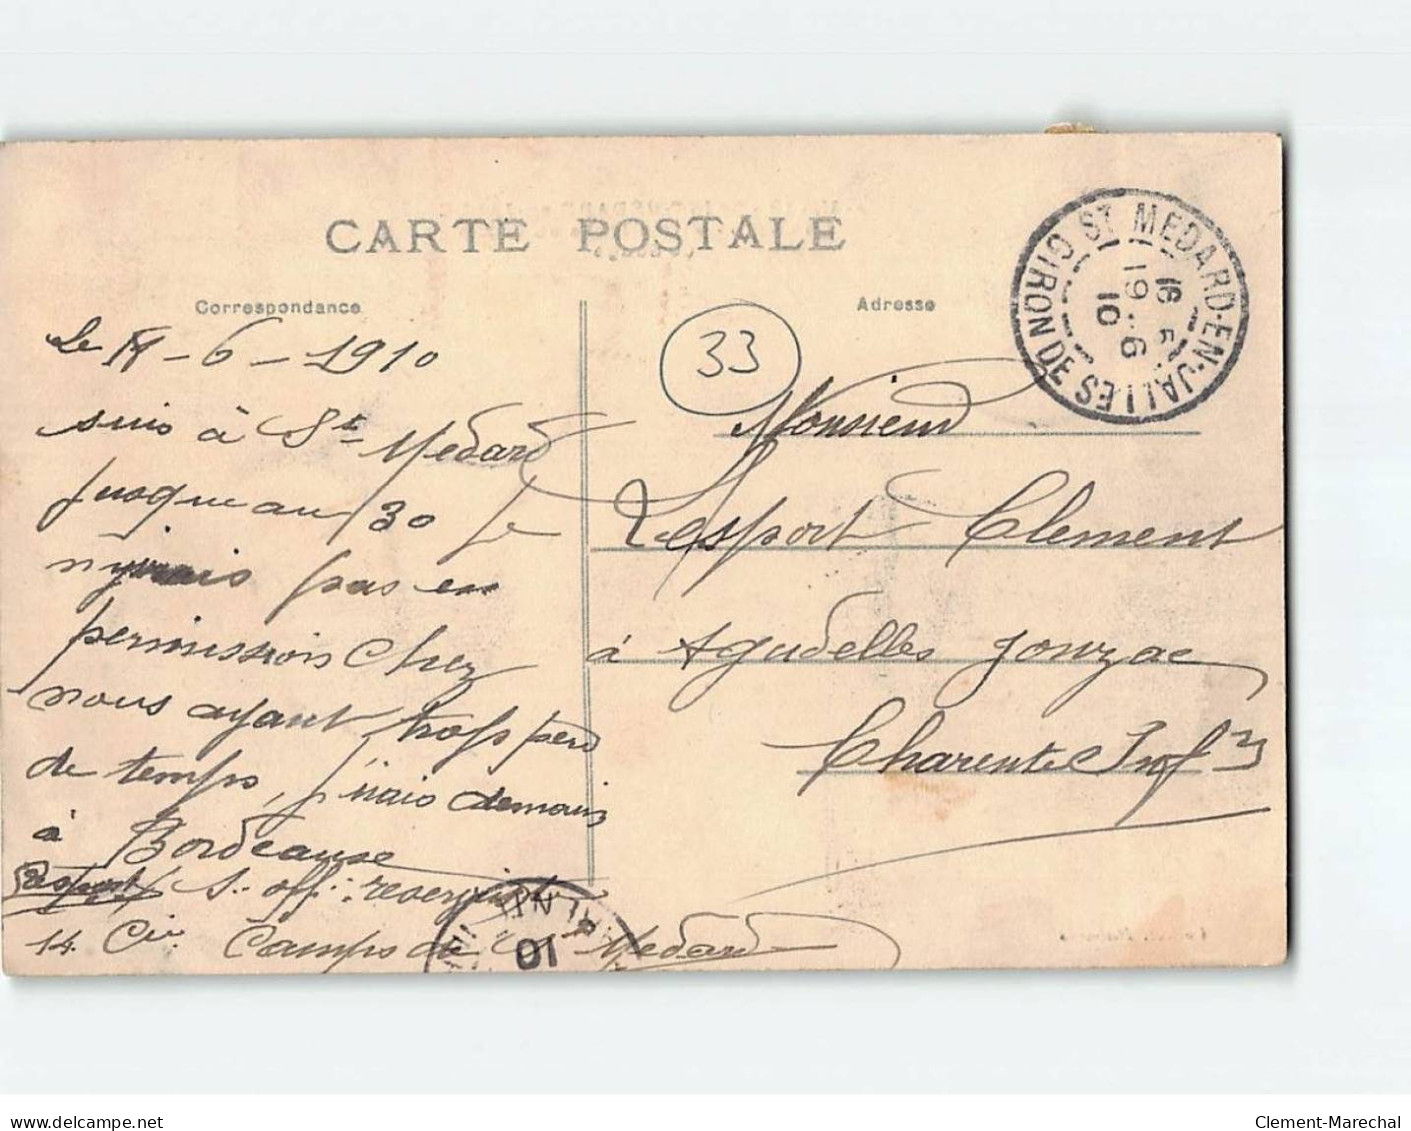 CARTE POSTALE
Correspondance
Adresse
ST MEDARD-EN-JALLES
GIRONDE
16
19 - 6
10
33
Le -6-1910
suis à St Medard
jusqu'au 30 Je
n'irais pas en
permission Chez
nous ayant trop perd
de temps, j'irais demain
à Bordeause
S. off. :
14 Cie Camps de St Medard
10
Monsieur
Lesport Clement
à Agudelles Jonzac
Charente Inf
delcampe.net
Clement-Marechal